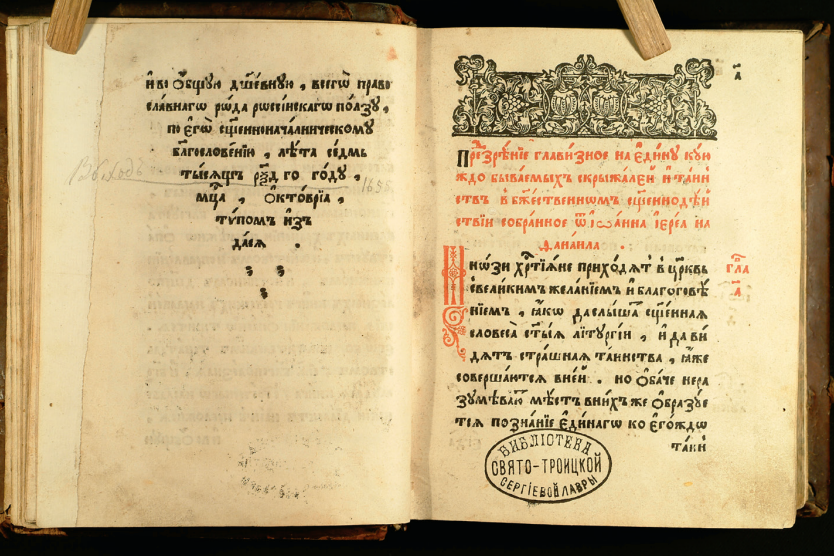 и во ѻ҆бщую дш҃евную, всегѡ право
славнагѡ рѡда рѡссійскагѡ по́лзу,
по є҆гѡ̀ сщ҃еннонача́лническому
бл҃гослове́нїю, лѣ́та се́дмь
ты́сѧщъ р҃ѯд го го́ду,
мц҃а, ѻ҆ктѡ́врїа,
ту́помъ и҆з̾
да́сѧ.
1655
а҃
Презрѣ́нїе глави́зное на є҆ди́ну кую
ждо быва́емыхъ скрыжа́лей и҆ та́ин
ствъ в̾ бж҃е́ственномъ сщ҃еннодѣ́й
ствїи собра́нное ѿ і҆ѡа́нна і҆ере́а на
ѳана́ила.
Мно́зи хр҃тїѧ́не прихо́дѧтъ в̾ цр҃ковь
с̾ вели́кимъ жела́нїемъ и҆ благоговѣ́
нїемъ, ꙗ҆́кѡ да слы́шатъ сщ҃е́ннаѧ
словеса̀ ст҃ы́ѧ літургі́и, и҆ да ви́
дѧтъ стра́шнаѧ та̑инства, ꙗ҆̀же
соверша́ютсѧ в̾ не́й. но ѻ҆ба́че не ра
зумѣва́ютъ мѣ́стъ в̾ ни́хъ же ѻ҆бразуе
тсѧ позна́нїе є҆ди́нагѡ ко є҆гѡ́ждѡ
та́ки
гл҃а
а҃
БИБЛІОТЕКА
СВЯТО-ТРОИЦКОЙ
СЕРГІЕВОЙ ЛАВРЫ